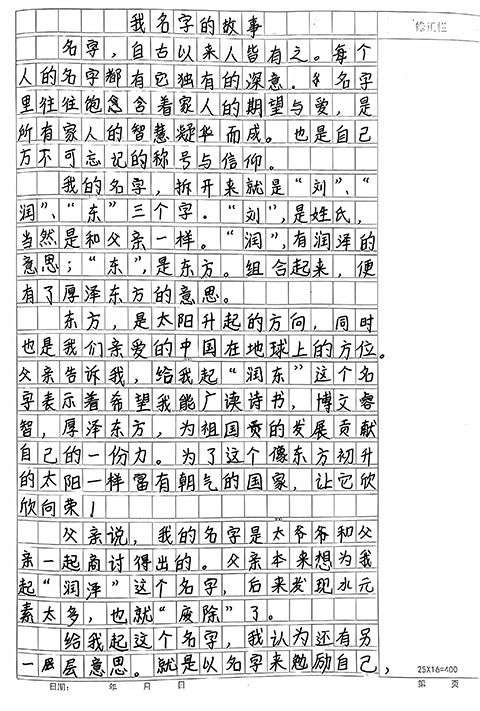 我名字的故事
修汇栏
名字，自古以来人皆有之。每个
人的名字都有它独有的深意。名字
里往往饱含含着家人的期望与爱，是
所有家人的智慧凝华而成。也是自己
万不可忘记的称号与信仰。
我的名字，拆开来就是“刘”、“
润”、“东”三个字．“刘”，是姓氏，
当然是和父亲一样。“润”，有润泽的
意思；“东”，是东方。组合起来，便
有了厚泽东方的意思。
东方，是太阳升起的方向，同时
也是我们亲爱的中国在地球上的方位。
父亲告诉我，给我起“润东”这个名
字表示着希望我能广读诗书，博文睿
智，厚泽东方，为祖国贡的发展贡献
自己的一份力。为了这个像东方初升
的太阳一样富有朝气的国家，让它欣
欣向荣！
父亲说，我的名字是太爷爷和父
亲一起商讨得出的。父亲本来想为我
起“润泽”这个名字，后来发现水元
素太多，也就“废除”了。
给我起这个名字，我认为还有另
一层层意思。就是以名字来勉励自己，
25X16=400
日期： 年 月 日 第 页